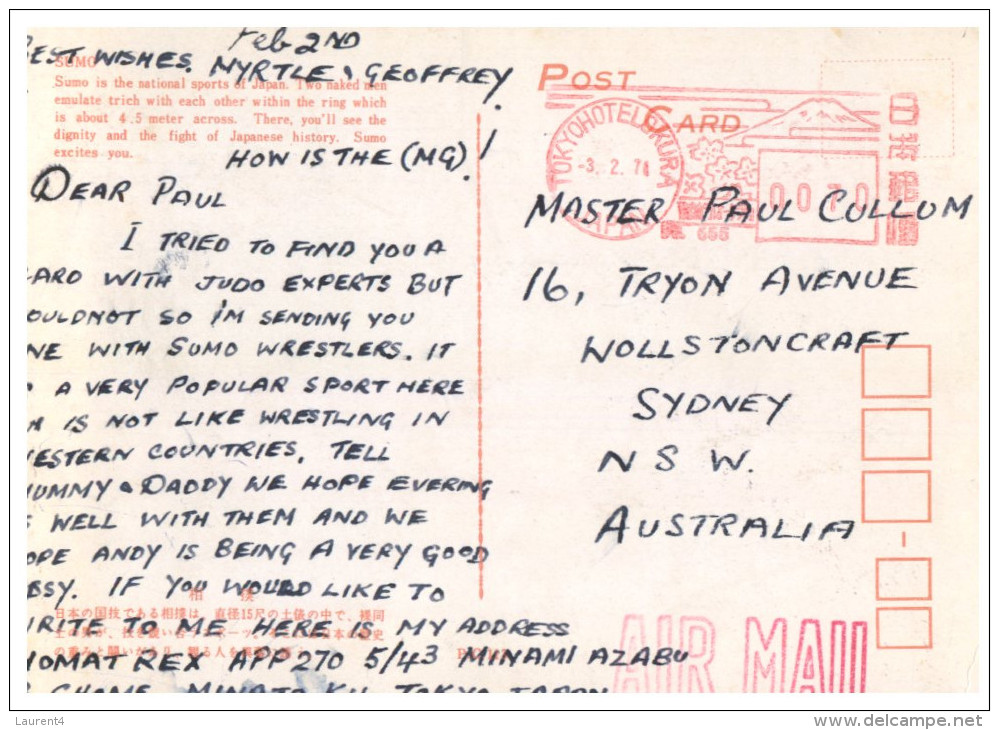 Feb 2ND
BEST WISHES. MYRTLE & GEOFFREY.
SUMO
Sumo is the national sports of Japan. Two naked men
emulate trich with each other within the ring which
is about 4.5 meter across. There, you'll see the
dignity and the fight of Japanese history. Sumo
excites you.
HOW IS THE (MG)!
DEAR PAUL
I TRIED TO FIND YOU A
CARD WITH JUDO EXPERTS BUT
OULDNOT SO I'M SENDING YOU
NE WITH SUMO WRESTLERS. IT
A VERY POPULAR SPORT HERE
IS NOT LIKE WRESTLING IN
ESTERN COUNTRIES. TELL
UMMY & DADDY WE HOPE EVERING
WELL WITH THEM AND WE
OPE ANDY IS BEING A VERY GOOD
IF YOU WOULD LIKE TO
RITE TO ME HERE IS MY ADDRESS
OMAT REX APP 270 5/43 MINAMI AZABU
CHOME MINATO KU TOKYO JAPAN
相 撲
日本の国技である相撲は、直径15尺の土俵の中で、裸同
POST
CARD
TOKYO HOTEL OKURA
-3. 2. 78
JAPAN
655
0070
MASTER PAUL CULLUM
16, TRYON AVENUE
WOLLSTONCRAFT
SYDNEY
N S W.
AUSTRALIA
AIR MAIL
Laurent4
delcampe.net